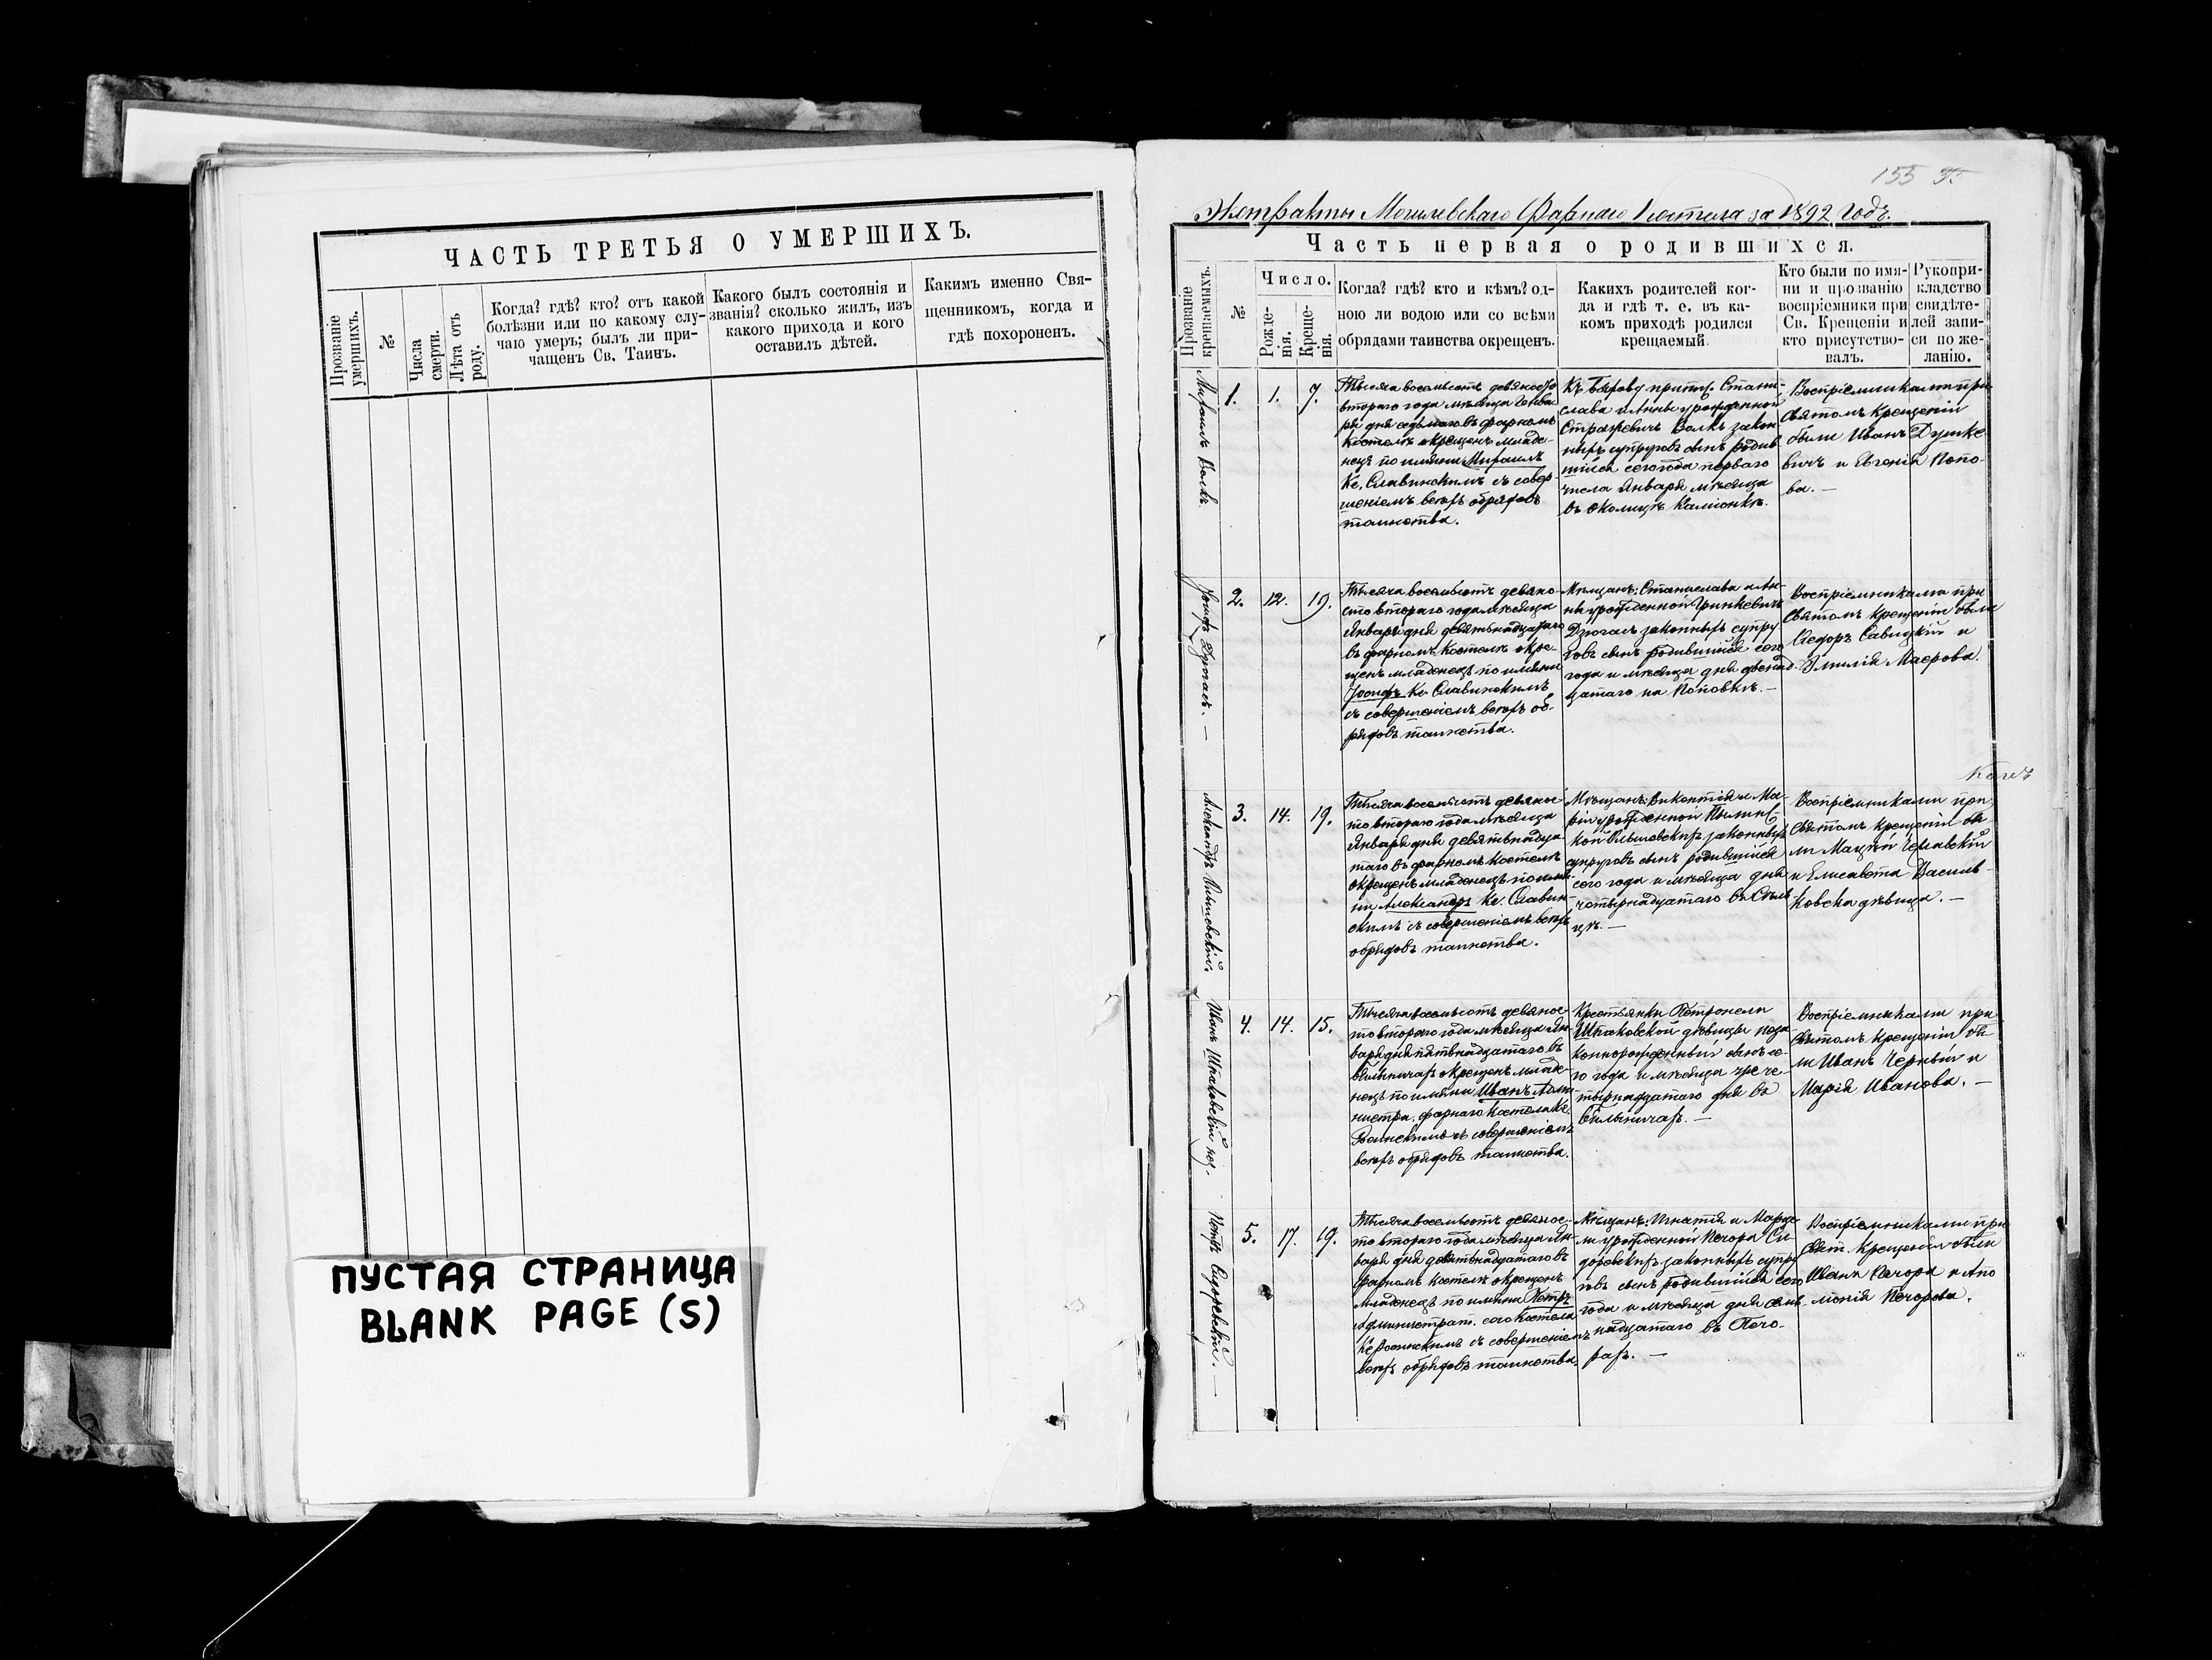 ЧАСТЬ ТРЕТЬЯ О УМЕРШИХЪ.
Прозваніе умершихъ.
№
Числа смерти.
Лѣта отъ роду.
Когда? гдѣ? кто? отъ какой
болѣзни или по какому слу-
чаю умеръ; былъ ли при-
чащенъ Св. Таинъ.
Какого былъ состоянія и
званія? сколько жилъ, изъ
какого прихода и кого
оставилъ дѣтей.
Какимъ именно Свя-
щенникомъ, когда и
гдѣ похороненъ.
ПУСТАЯ СТРАНИЦА
BLANK PAGE (S)
155
Экстракты Могилевскаго Фарнаго Костела за 1892 годъ.
Часть первая о родившихся.
Прозваніе крещаемыхъ.
№
Число.
Рожде-
нія.
Креще-
нія.
Когда? гдѣ? кто и кѣмъ? од-
ною ли водою или со всѣми
обрядами таинства окрещенъ.
Какихъ родителей ког-
да и гдѣ т. е. въ ка-
комъ приходѣ родился
крещаемый.
Кто были по имя-
ни и прозванію
воспріемники при
Св. Крещеніи и
кто присутство-
валъ.
Рукопри-
кладство
свидѣте-
лей запи-
си по же-
ланію.
Михаилъ Волкъ.
1.
1.
7.
Тысяча восемьсотъ девяносто
втораго года мѣсяца Янва
ря дня седьмаго въ фарномъ
Костелѣ окрещенъ младе-
нецъ по имени Михаилъ
Кс. Славинскимъ съ совер-
шеніемъ всѣхъ обрядовъ
таинства.
Стани-
слава и Анны урожденной
Страхевичъ Волкъ закон
ныхъ супруговъ сынъ родив
шійся сего года перваго
числа Января мѣсяца
въ околицѣ Каміонкѣ.
Воспріемниками при
Святомъ Крещеніи
были Иванъ Душке
вичъ и Евгенія Попо-
ва. —
2.
12.
19.
Тысяча восемьсотъ девяно-
сто втораго года мѣсяца
Января дня девятнадцатаго
въ фарномъ Костелѣ окре-
щенъ младенецъ по имени
Іосифъ Кс. Славинскимъ
съ совершеніемъ всѣхъ об-
рядовъ таинства.
Мѣщанъ: Станислава и Ан-
ны урожденной Гринкевичъ
законныхъ супру
говъ сынъ родившійся сего
года и мѣсяца дня двенад-
цатаго на Поповкѣ. —
Воспріемниками при
Святомъ Крещеніи были
Ѳедоръ Савицкій и
Эмилія Маерова.
3.
14.
19.
Тысяча восемьсотъ девянос
то втораго года мѣсяца
Января дня девятьнадца
таго въ фарномъ Костелѣ
окрещенъ младенецъ по име-
ни Александръ Кс. Славин-
скимъ съ совершеніемъ всѣхъ
обрядовъ таинства.
Мѣщанъ: Викентія и Ма-
ріи урожденной
законныхъ
супруговъ сынъ родившійся
сего года и мѣсяца дня
четырнадцатаго въ
Воспріемниками при
Святомъ Крещеніи бы
ли
и Елисавета Василь-
ковска дѣвица. —
Иванъ Шпаковскій
4.
14.
15.
Тысяча восемьсотъ девянос
то втораго года мѣсяца Ян-
варя дня пятнадцатаго въ
Бѣлыничахъ окрещенъ младе-
нецъ по имени Иванъ Адми-
нистра. фарнаго Костела Кс.
съ совершеніемъ
всѣхъ обрядовъ таинства.
Крестьянки Петронели
Шпаковской дѣвицы неза
коннорожденный сынъ се-
го года и мѣсяца че
тырнадцатаго дня въ
Бѣлыничахъ. —
Воспріемниками при
Святомъ Крещеніи бы
ли Иванъ Черный и
Марія Иванова. —
Петръ Сидоровскій. —
5.
17.
19.
Тысяча восемьсотъ девянос-
то втораго года мѣсяца Ян-
варя дня девятьнадцатаго въ
фарномъ Костелѣ окрещенъ
младенецъ по имени Петръ
Администрат. сего Костела
съ совершеніемъ
всѣхъ обрядовъ таинства.
Мѣщанъ: Игнатія и
урожденной Печора Си-
доровскихъ законныхъ супру
говъ сынъ родившійся сего
года и мѣсяца дня семь-
надцатаго въ Печо-
рахъ. —
Воспріемниками при
Свят. Крещеніи были
Иванъ Печора и Апо
лонія Печорова.